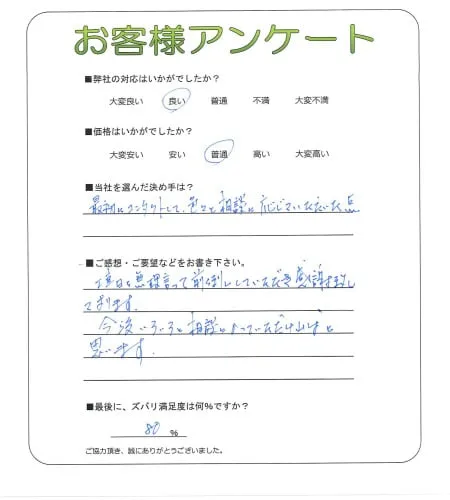 お客様アンケート
■弊社の対応はいかがでしたか?
大変良い 良い 普通 不満 大変不満
■価格はいかがでしたか?
大変安い 安い 普通 高い 大変高い
■当社を選んだ決め手は?
最初にコンタクトして、色々と相談に応じていただいた点
■ご感想・ご要望などをお書き下さい。
無理言って前倒ししていただき感謝致し
ております。
今後いろいろ相談にのっていただければと
思います。
■最後に、ズバリ満足度は何%ですか?
80 %
ご協力頂き、誠にありがとうございました。